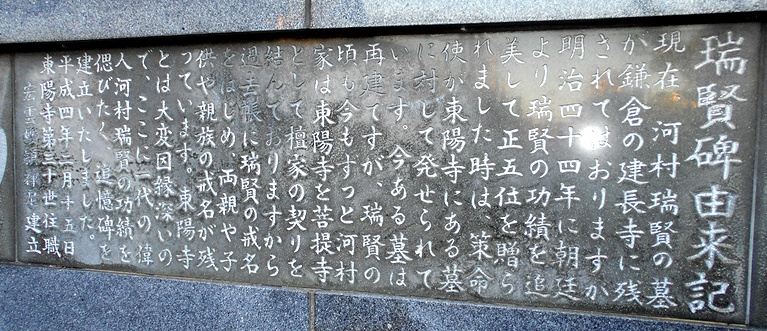 瑞賢碑由来記
現在　河村瑞賢の墓
が鎌倉の建長寺に残
されてはおりますが
明治四十四年に朝廷
より瑞賢の功績を追
美して正五位を贈ら
れました時は、策命
使が東陽寺にある墓
に対して発せられて
います。今ある墓は
再建ですが、瑞賢の
頃も今もずっと河村
家は東陽寺を菩提寺
として檀家の契りを
結んでおりますから
過去帳に瑞賢の戒名
をはじめ、両親や子
供や親族の戒名が残
っています。東陽寺
とは大変因縁深いの
で、ここに一代の偉
人河村瑞賢の功績を
偲びたく、追憶碑を
建立いたしました。
平成四年二月十五日
東陽寺第三十世住職
建立